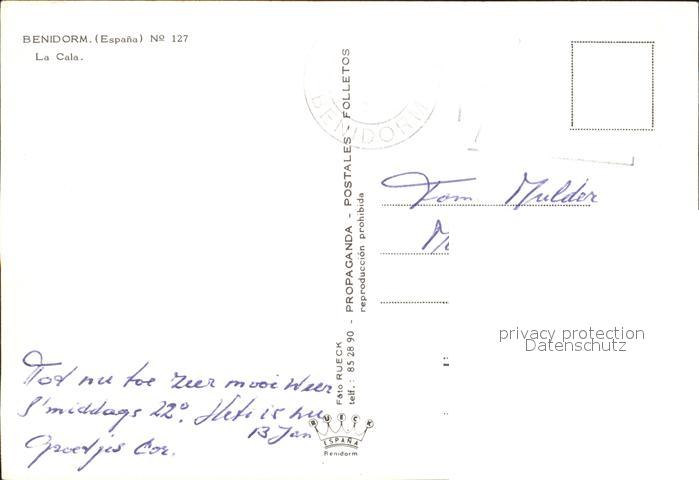 BENIDORM. (España) Nº 127
La Cala.
BENIDORM
Tom Mulder
PROPAGANDA - POSTALES - FOLLETOS
reproducción prohibida
Foto RUECK
telf.: 85 28 90
RUECK
ESPAÑA
Benidorm
privacy protection
Datenschutz
Tot nu toe zeer mooi weer
S'middags 22°. Het is nu
13 Jan
Groetjes Cor.